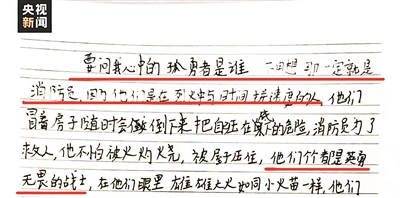 央视
新闻
要问我心中的 勇者是谁 一定就是
消防员,因为他们是在烈火中与时间拼速度的人,他们
冒着房子随时会倾倒下来把自己压 的危险,消防员为了
救人,他不怕被火灼烧,被房子压住,他们个都是英勇
无畏的战士,在他们眼里 雄雄大火如同小火苗一样,他们